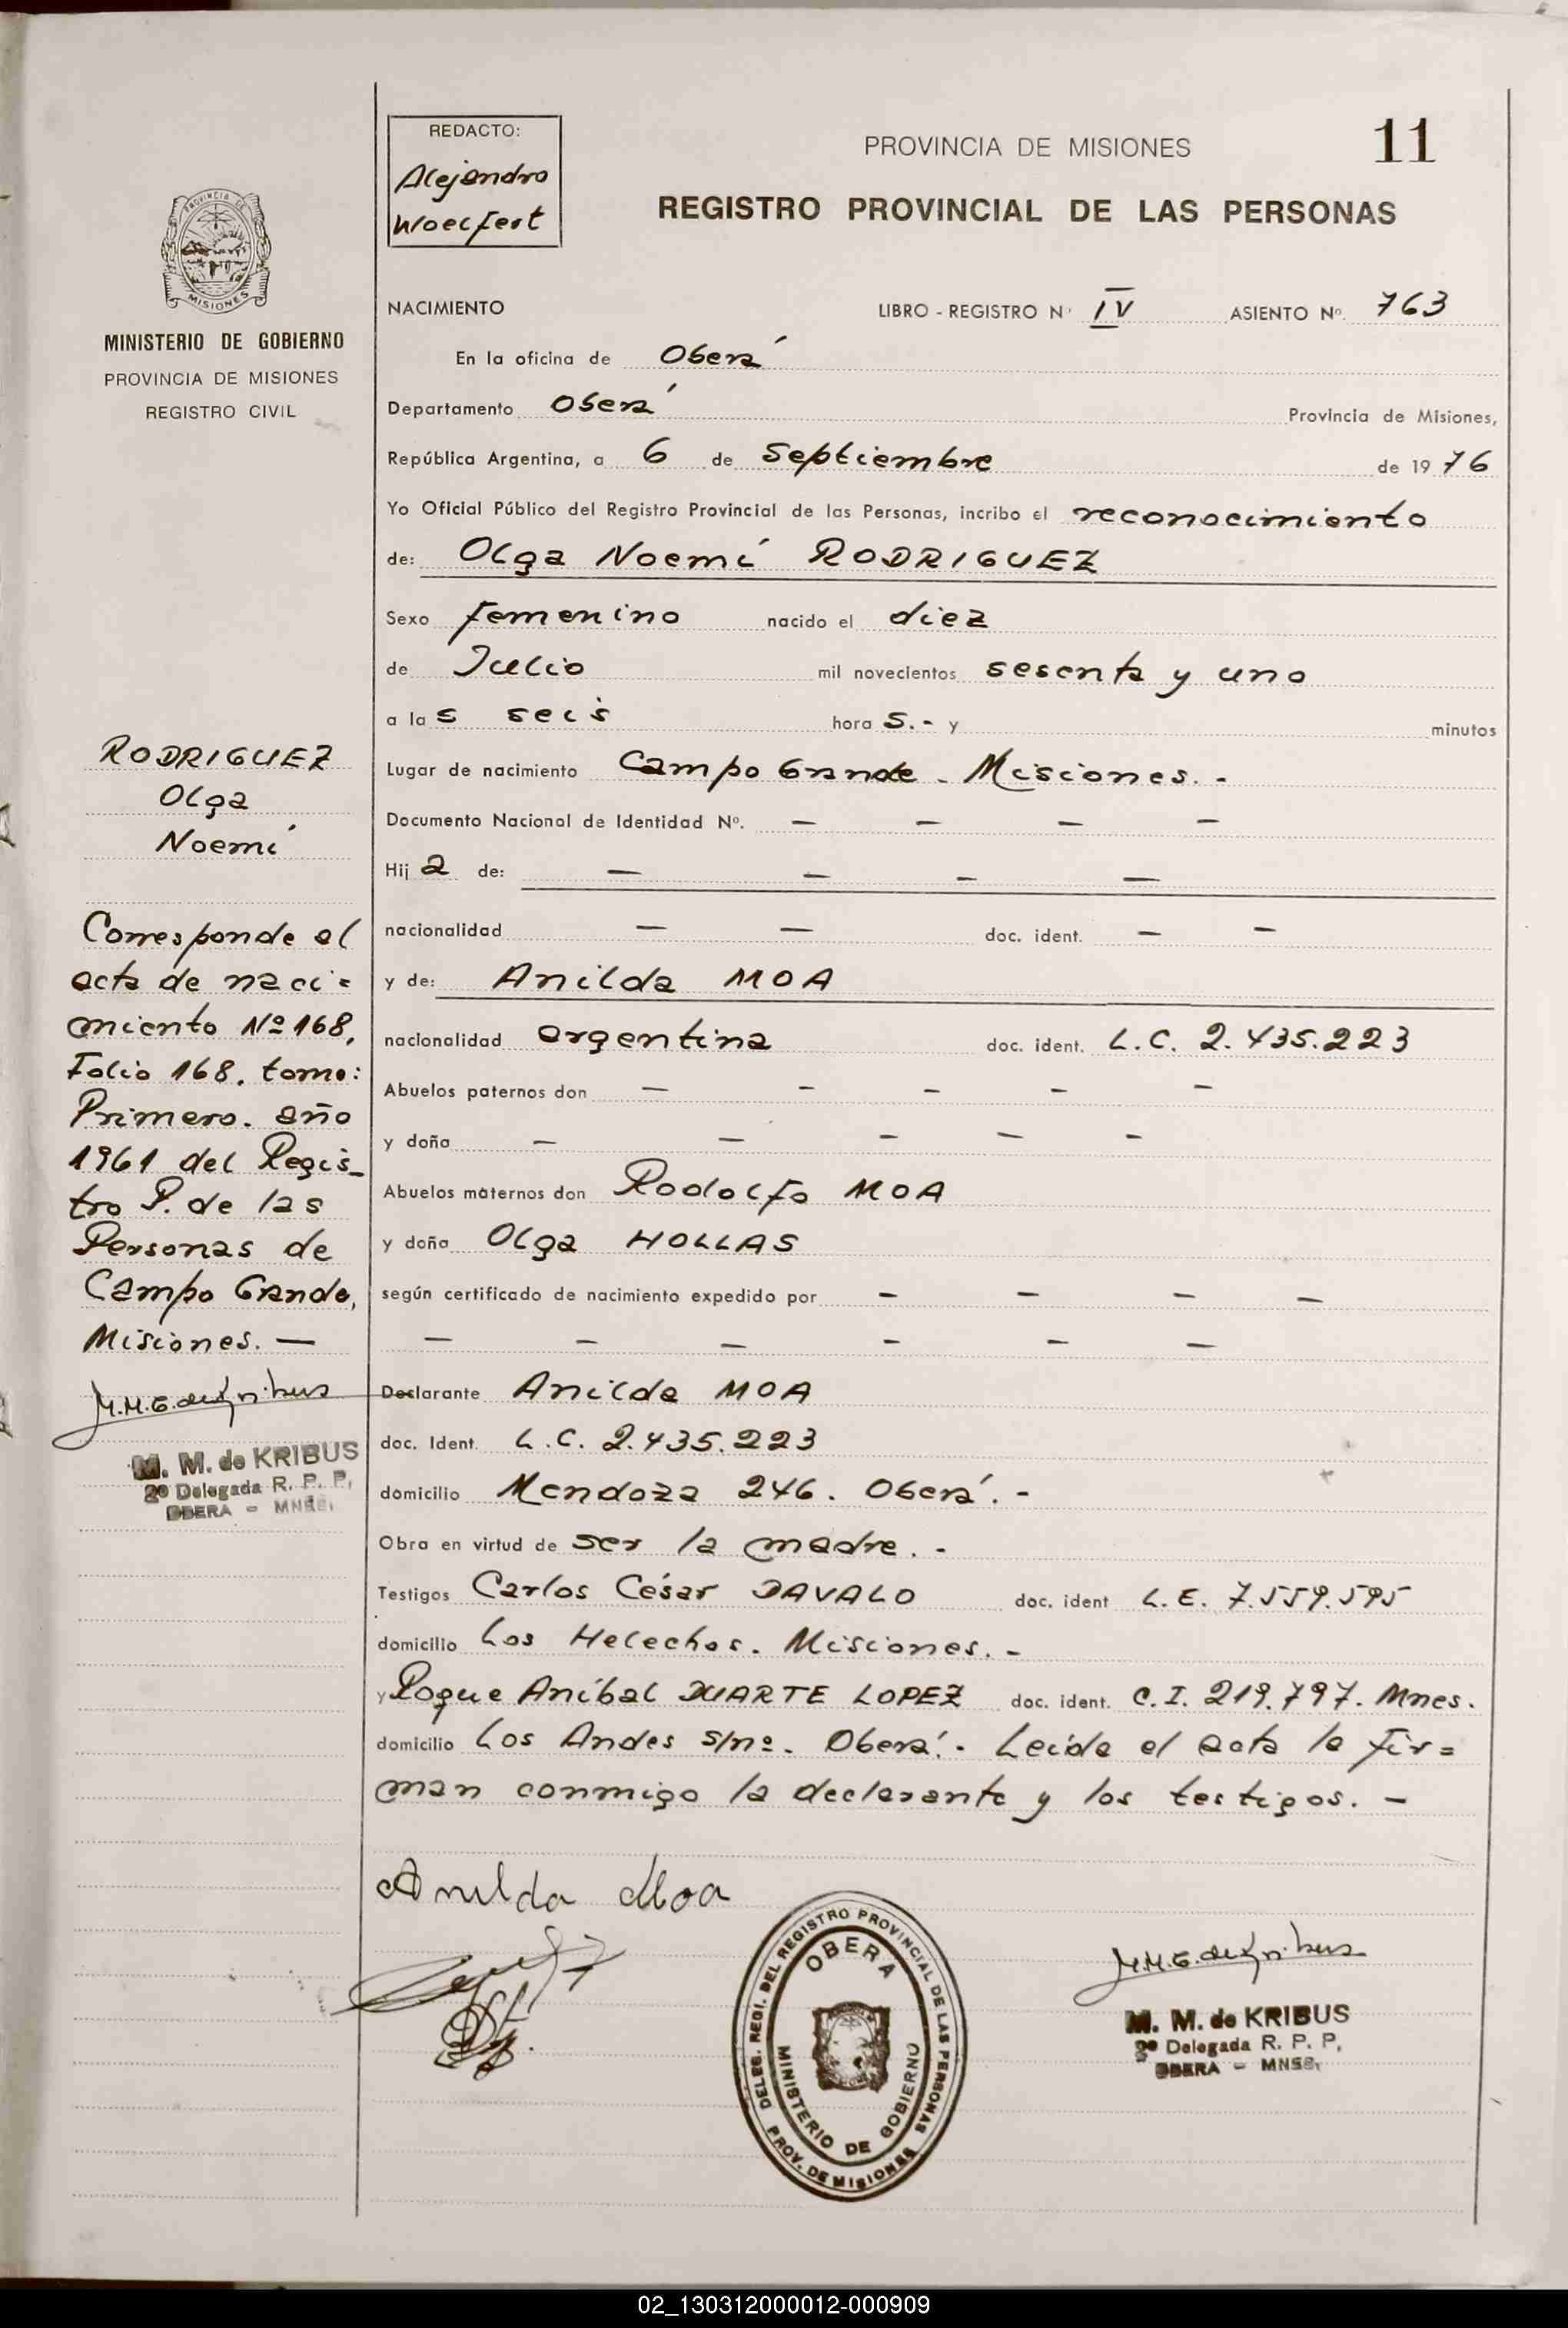 REDACTO:
Alejandro
Woelfert
PROVINCIA DE MISIONES
11
REGISTRO PROVINCIAL DE LAS PERSONAS
PROVINCIA DE
MISIONES
MINISTERIO DE GOBIERNO
PROVINCIA DE MISIONES
REGISTRO CIVIL
NACIMIENTO LIBRO - REGISTRO Nº IV ASIENTO Nº. 763
En la oficina de Oberá
Departamento Oberá Provincia de Misiones,
República Argentina, a 6 de Septiembre de 1976
Yo Oficial Público del Registro Provincial de las Personas, incribo el reconocimiento
de: Olga Noemí RODRIGUEZ
Sexo femenino nacido el diez
de Julio mil novecientos sesenta y uno
a las seis horas.- y minutos
Lugar de nacimiento Campo Grande - Misiones. -
Documento Nacional de Identidad Nº. — — — —
Hija de: — — — —
nacionalidad — — doc. ident. — —
y de: Anilda MOA
nacionalidad argentina doc. ident. L.C. 2.435.223
Abuelos paternos don — — — — —
y doña — — — — —
Abuelos maternos don Rodolfo MOA
y doña Olga HOLLAS
según certificado de nacimiento expedido por — — — —
— — — — — —
Declarante Anilda MOA
doc. Ident. L.C. 2.435.223
domicilio Mendoza 246. Oberá. -
Obra en virtud de ser la madre. -
Testigos Carlos César DAVALO doc. ident L.E. 7.559.595
domicilio Los Helechos. Misiones. -
y Roque Aníbal DUARTE LOPEZ doc. ident. C.I. 219.797. Mnes.
domicilio Los Andes s/nº. Oberá. - Leída el acta la fir=
man conmigo la declarante y los testigos. -
RODRIGUEZ
Olga
Noemí
Corresponde al
acta de naci=
miento Nº 168,
Folio 168, tomo:
Primero. año
1961 del Regis-
tro P. de las
Personas de
Campo Grande,
Misiones. —
M.M.G. de Kribus
M. M. de KRIBUS
2º Delegada R. P. P,
OBERA - MNES.
Anilda Moa
DELEG. REGI. DEL REGISTRO PROVINCIAL DE LAS PERSONAS
OBERA
MINISTERIO DE GOBIERNO
PROV. DE MISIONES
M.M.G. de Kribus
M. M. de KRIBUS
2º Delegada R. P. P,
OBERA - MNES,
02_130312000012-000909